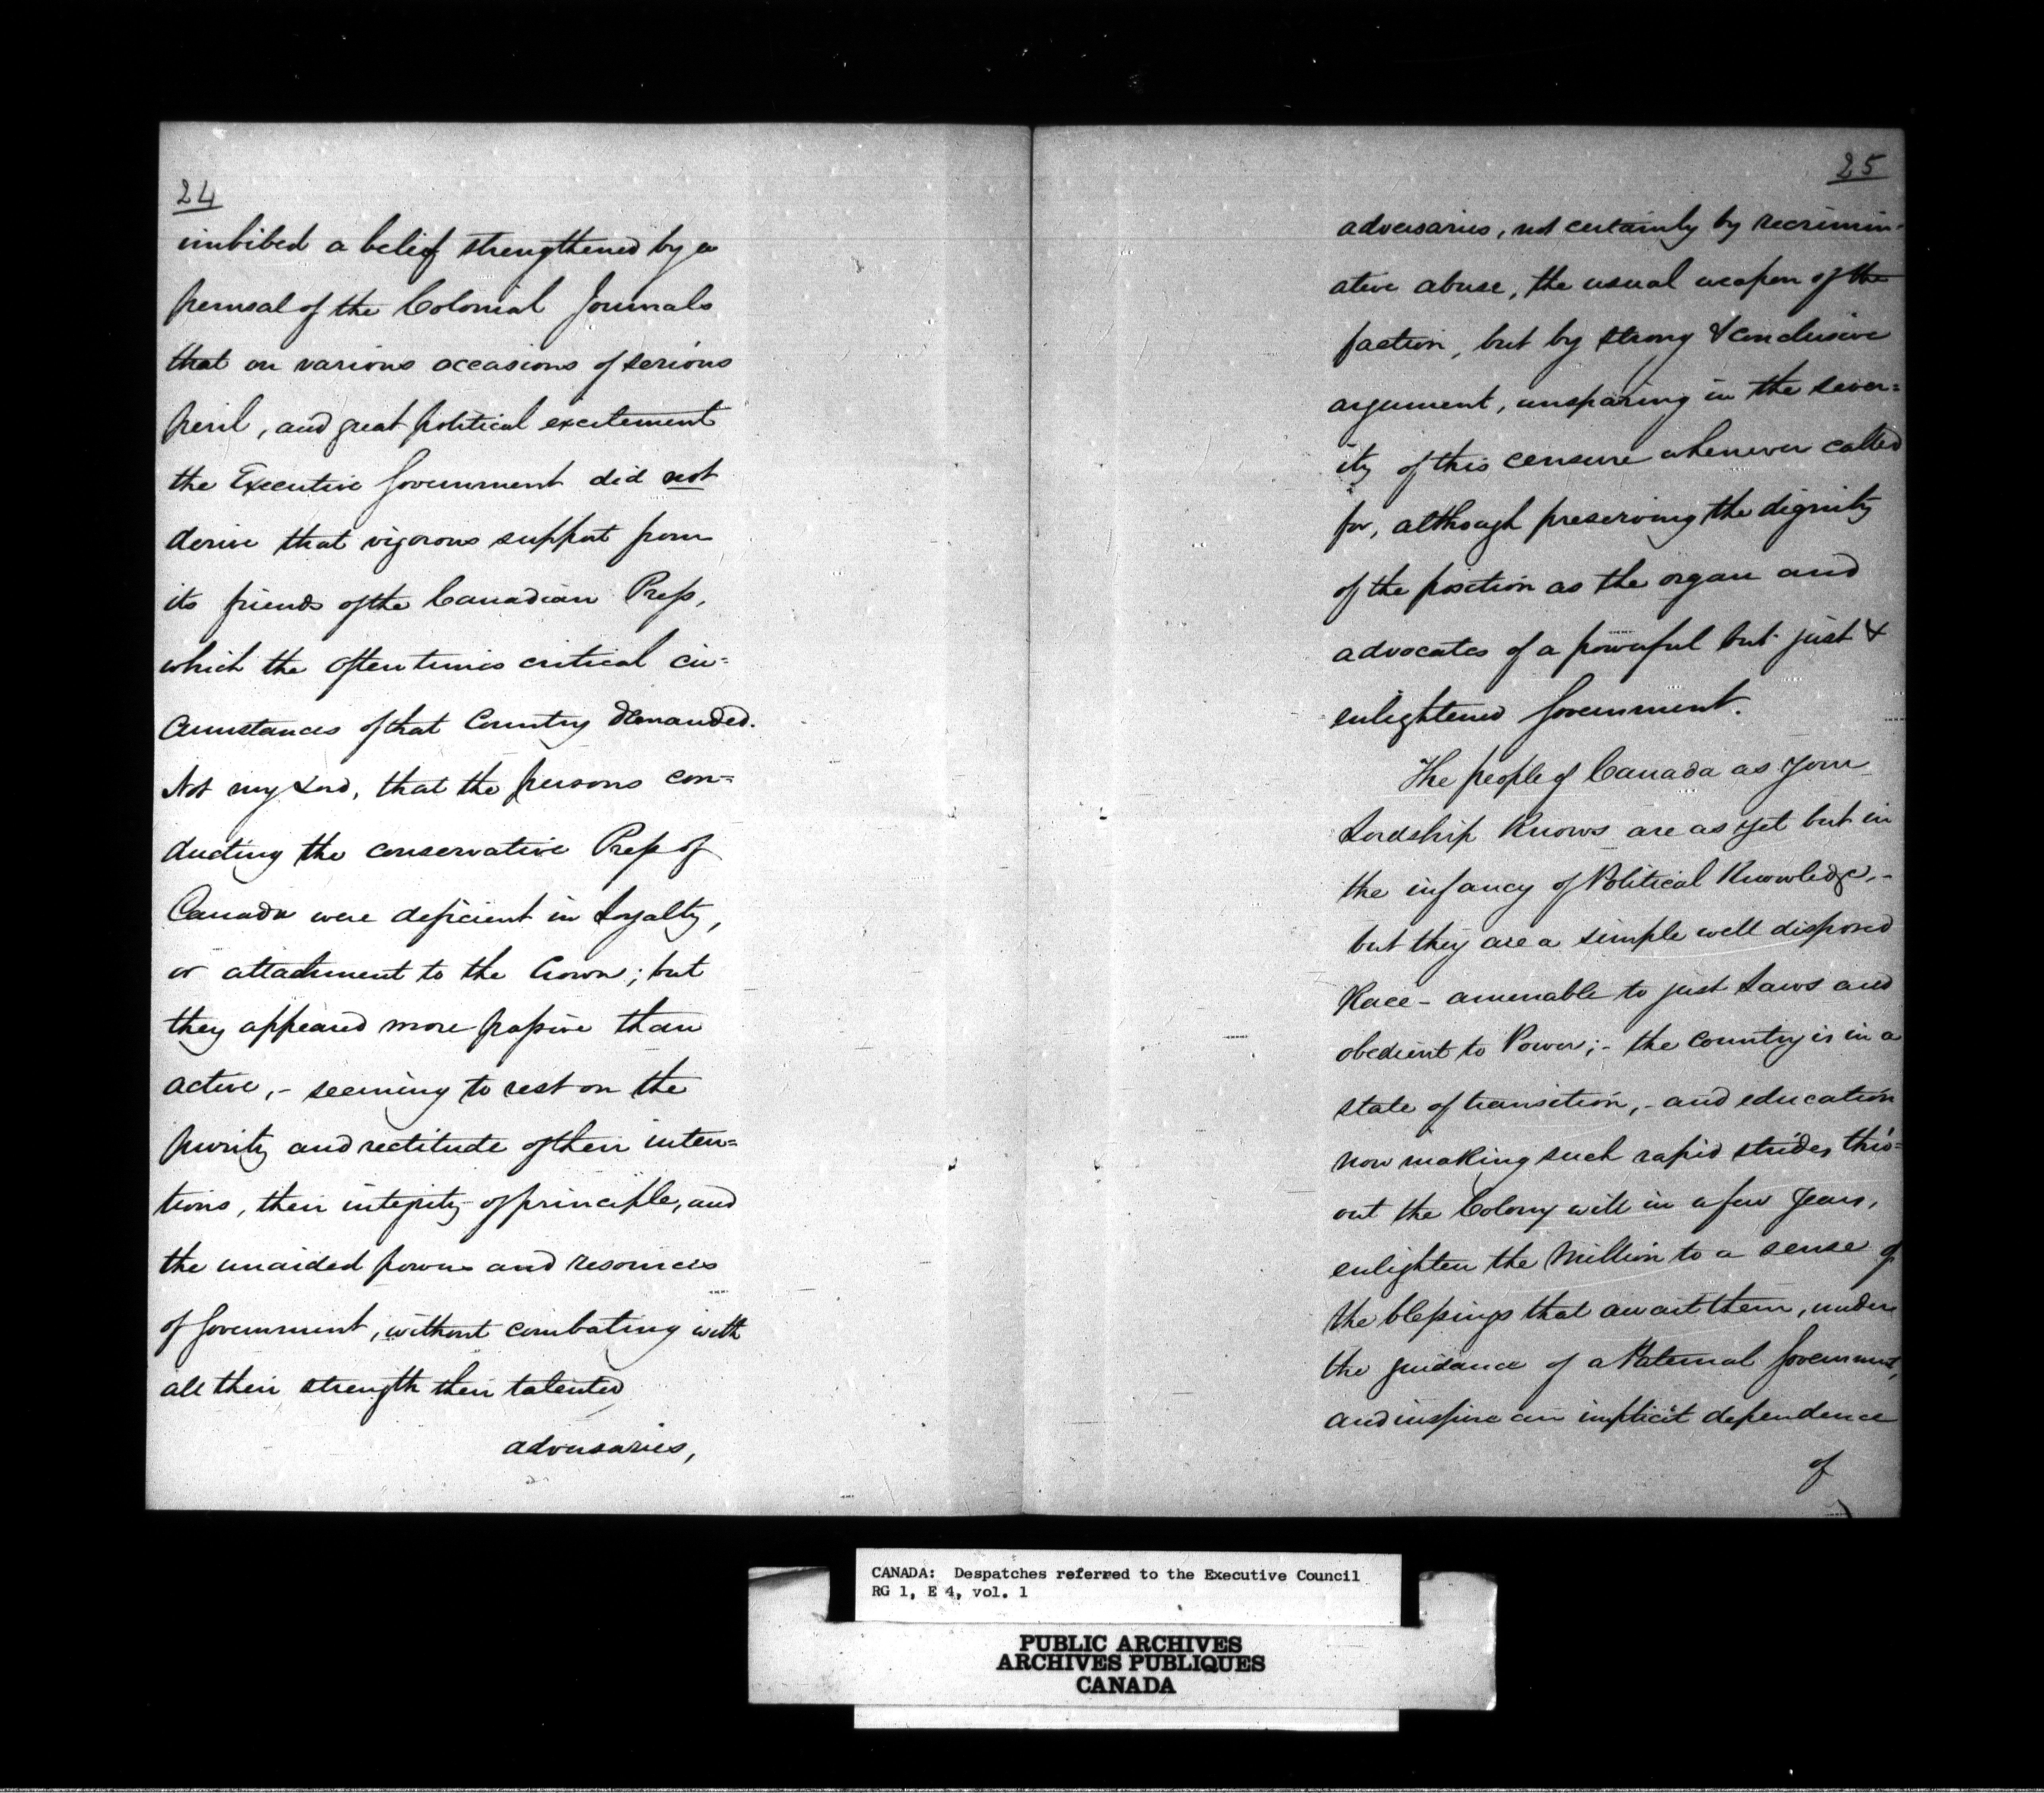 24
imbibed a belief strengthened by a
perusal of the Colonial Journals
that on various occasions of serious
peril, and great political excitement
the Executive Government did not
derive that vigorous support from
its friends of the Canadian Press,
which the oftentimes critical cir=
cumstances of that Country demanded.
Not my Lord, that the persons con=
ducting the conservative Press of
Canada were deficient in Loyalty,
or attachment to the Crown; but
they appeared more passive than
active, - seeming to rest on the
purity and rectitude of their inten=
tions, their integrity of principle, and
the unaided powers and resources
of Government, without combating with
all their strength their talented
adversaries,
25
adversaries, not certainly by recrimin-
ative abuse, the usual weapon of the
faction, but by strong & conclusive
argument, unsparing in the sever=
ity of this censure whenever called
for, although preserving the dignity
of the position as the organ and
advocates of a powerful but just &
enlightened Government.
The people of Canada as your
Lordship Knows are as yet but in
the infancy of Political Knowledge, -
but they are a simple well disposed
Race - amenable to just Laws and
obedient to Power; - the country is in a
state of transition, - and education
now making such rapid strides thro=
out the Colony will in a few years,
enlighten the Million to a sense of
the blessings that await them, under
the guidance of a Paternal Government,
and inspire an implicit dependence
of
CANADA: Despatches referred to the Executive Council
RG 1, E 4, vol. 1
PUBLIC ARCHIVES
ARCHIVES PUBLIQUES
CANADA